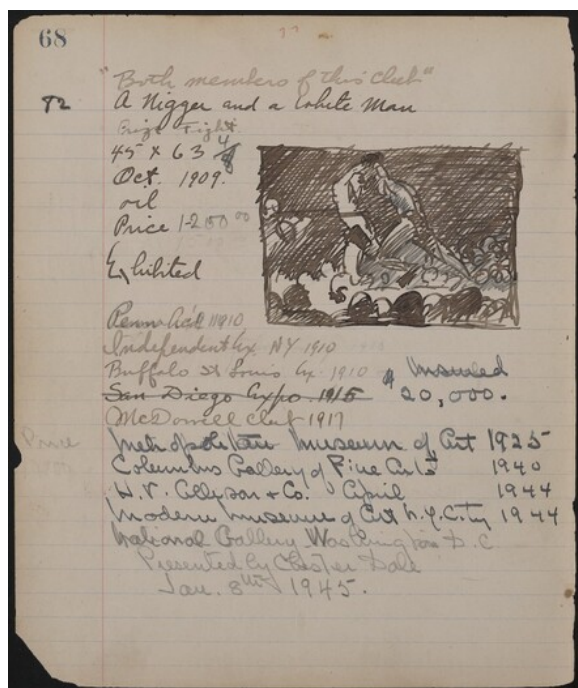 68
"Both members of this Club"
72 A Nigger and a White Man
Prize Fight
45 x 63 4/8
Oct. 1909.
oil
Price
Exhibited
Penn Acd 1910
Independent Ex. NY 1910
Buffalo St Louis Ex. 1910
Insured
San Diego Expo. 1915
$ 20,000.
McDowell Club 1917
Price
Metropolitan Museum of Art 1925
Columbus Gallery of Fine Arts 1940
H. V. Allison & Co. April 1944
Modern Museum of Art N.Y. City 1944
National Gallery Washington D.C
Presented by Chester Dale
Jan. 8th 1945.